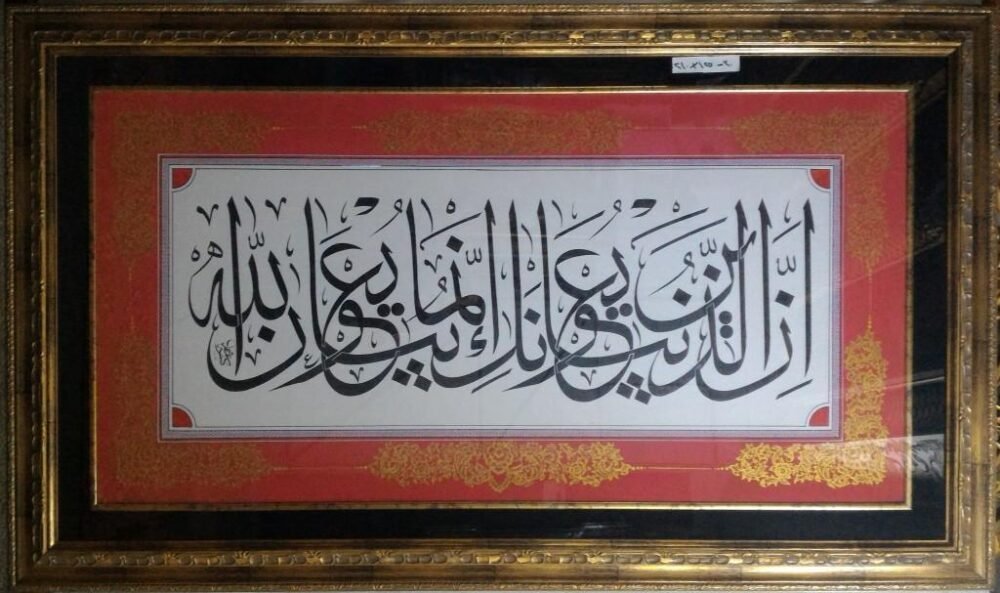 إِنَّ الَّذِينَ يُبَايِعُونَكَ إِنَّمَا يُبَايِعُونَ اللّٰهَ